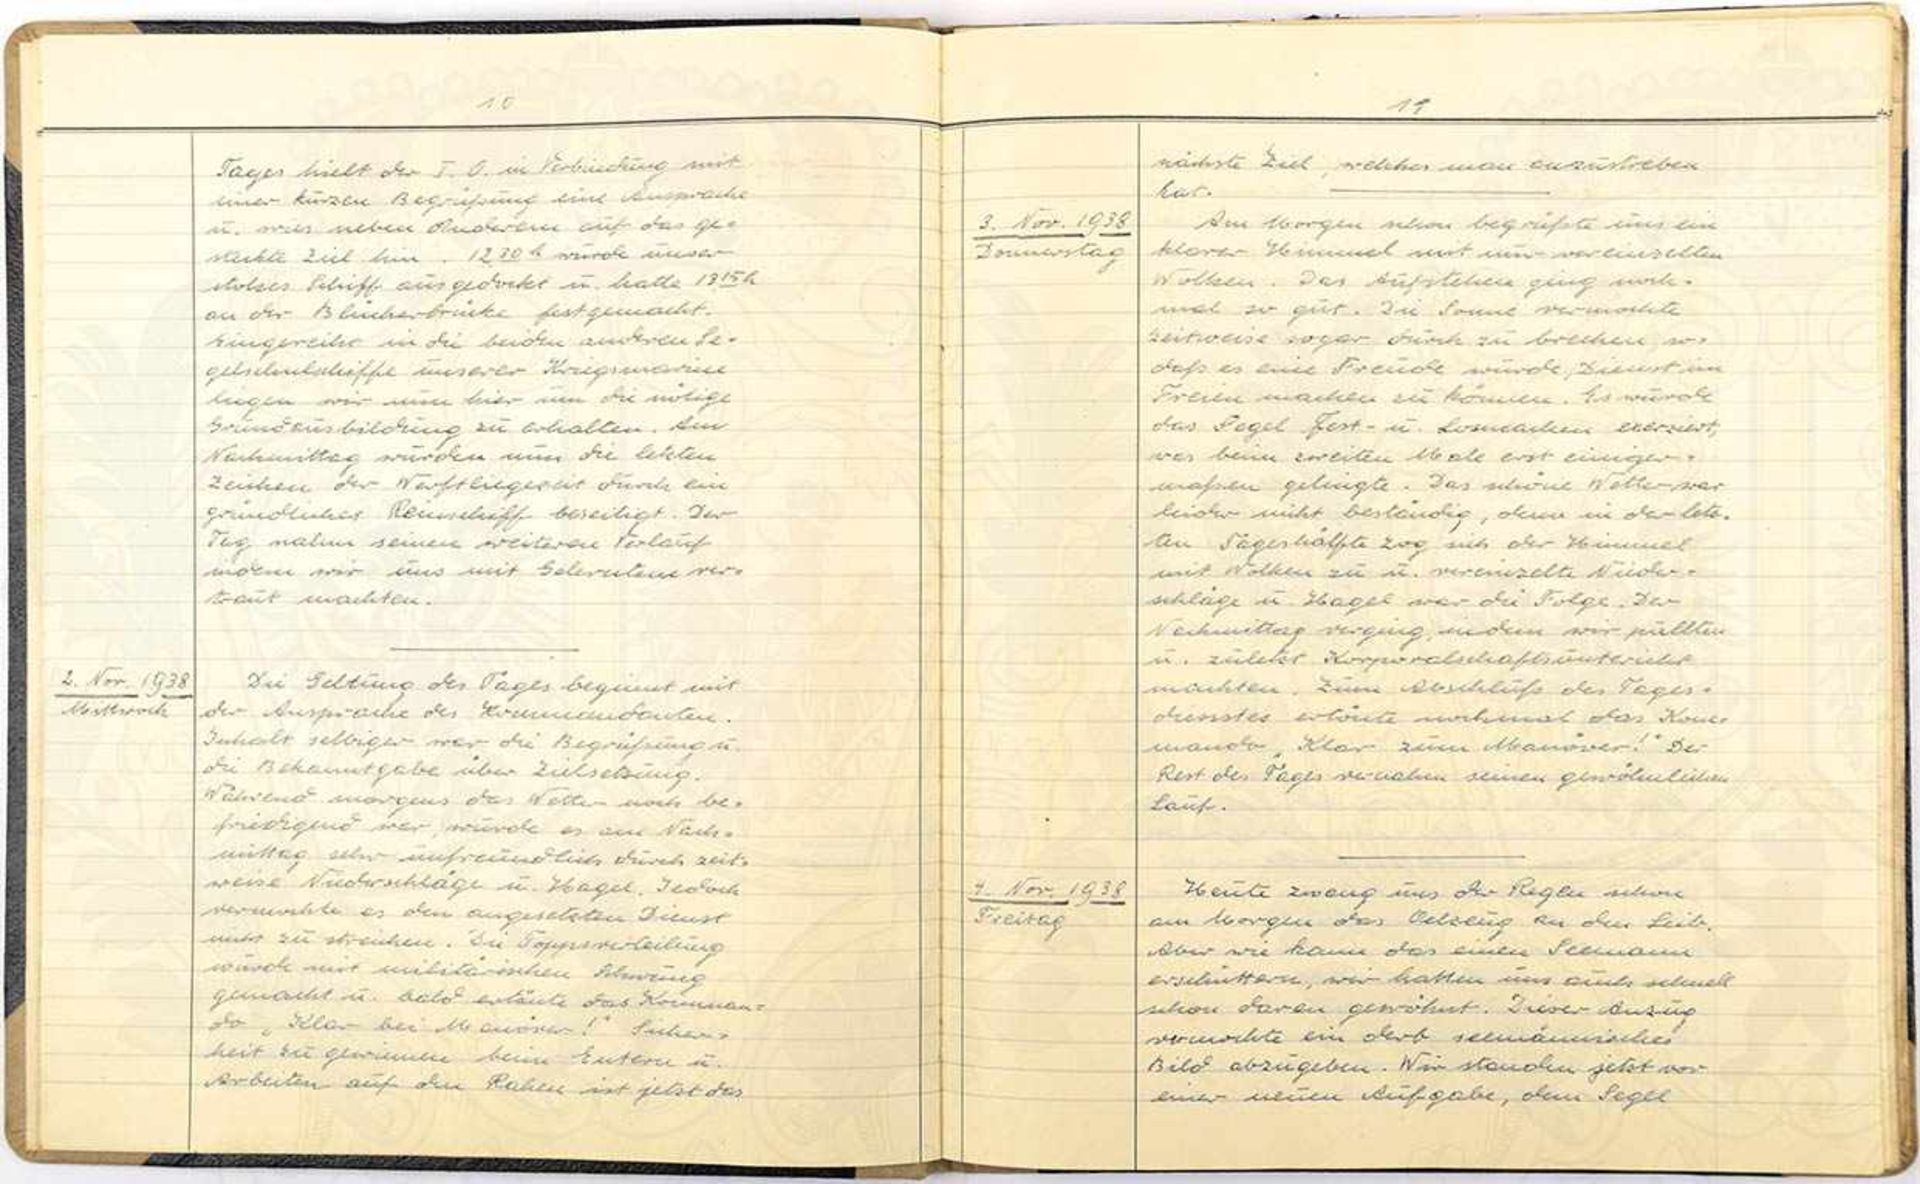 10
Tages hielt der I. O. in Verbindung mit
einer kurzen Begrüßung eine Ansprache
u. wies neben Anderem auf das ge-
steckte Ziel hin. 1230 h wurde unser
stolzes Schiff ausgedockt u. hatte 1315 h
an der Blücherbrücke festgemacht.
Eingereiht in die beiden anderen Se-
gelschulschiffe unserer Kriegsmarine
liegen wir nun hier um die nötige
Grundausbildung zu erhalten. Am
Nachmittag wurden nun die letzten
Zeichen der Werftliegezeit durch ein
gründliches Reinschiff beseitigt. Der
Tag nahm seinen weiteren Verlauf
indem wir uns mit Gelerntem ver-
traut machten.
2. Nov. 1938
Mittwoch
Die Geltung des Tages beginnt mit
der Ansprache des Kommandanten.
Inhalt selbiger war die Begrüßung u.
die Bekanntgabe über Zielsetzung.
Während morgens das Wetter noch be-
friedigend war, wurde es am Nach-
mittag sehr unfreundlich durch zeit-
weise Niederschläge u. Hagel. Jedoch
vermochte es den angesetzten Dienst
nicht zu streichen. Die Toppsverteilung
wurde mit militärischen Schwung
gemacht u. bald ertönte das Komman-
do „Klar bei Manöver!" Sicher-
heit zu gewinnen beim Entern u.
Arbeiten auf den Rahen ist jetzt das
11
nächste Ziel, welches man anzustreben
hat.
3. Nov. 1938
Donnerstag
Am Morgen schon begrüßte uns ein
klarer Himmel mit nur vereinzelten
Wolken. Das Aufstehen ging noch-
mal so gut. Die Sonne vermochte
zeitweise sogar durch zu brechen, so-
daß es eine Freude wurde, Dienst im
Freien machen zu können. Es wurde
das Segel Fest- u. Losmachen exerziert,
was beim zweiten Male erst einiger-
maßen gelingte. Das schöne Wetter war
leider nicht beständig, denn in der letz-
ten Tageshälfte zog sich der Himmel
mit Wolken zu u. vereinzelte Nieder-
schläge u. Hagel war die Folge. Der
Nachmittag verging, indem wir pullten
u. zuletzt Korporalschaftsunterricht
machten. Zum Abschluß des Tages-
dienstes ertönte nochmal das Kom-
mando „Klar zum Manöver!" Der
Rest des Tages vernahm seinen gewöhnlichen
Lauf.
4. Nov. 1938
Freitag
Heute zwang uns der Regen schon
am Morgen das Oelzeug an den Leib.
Aber wie kann das einen Seemann
erschüttern, wir hatten uns auch schnell
schon daran gewöhnt. Dieser Anzug
vermochte ein derb seemännisches
Bild abzugeben. Wir standen jetzt vor
einer neuen Aufgabe, dem Segel